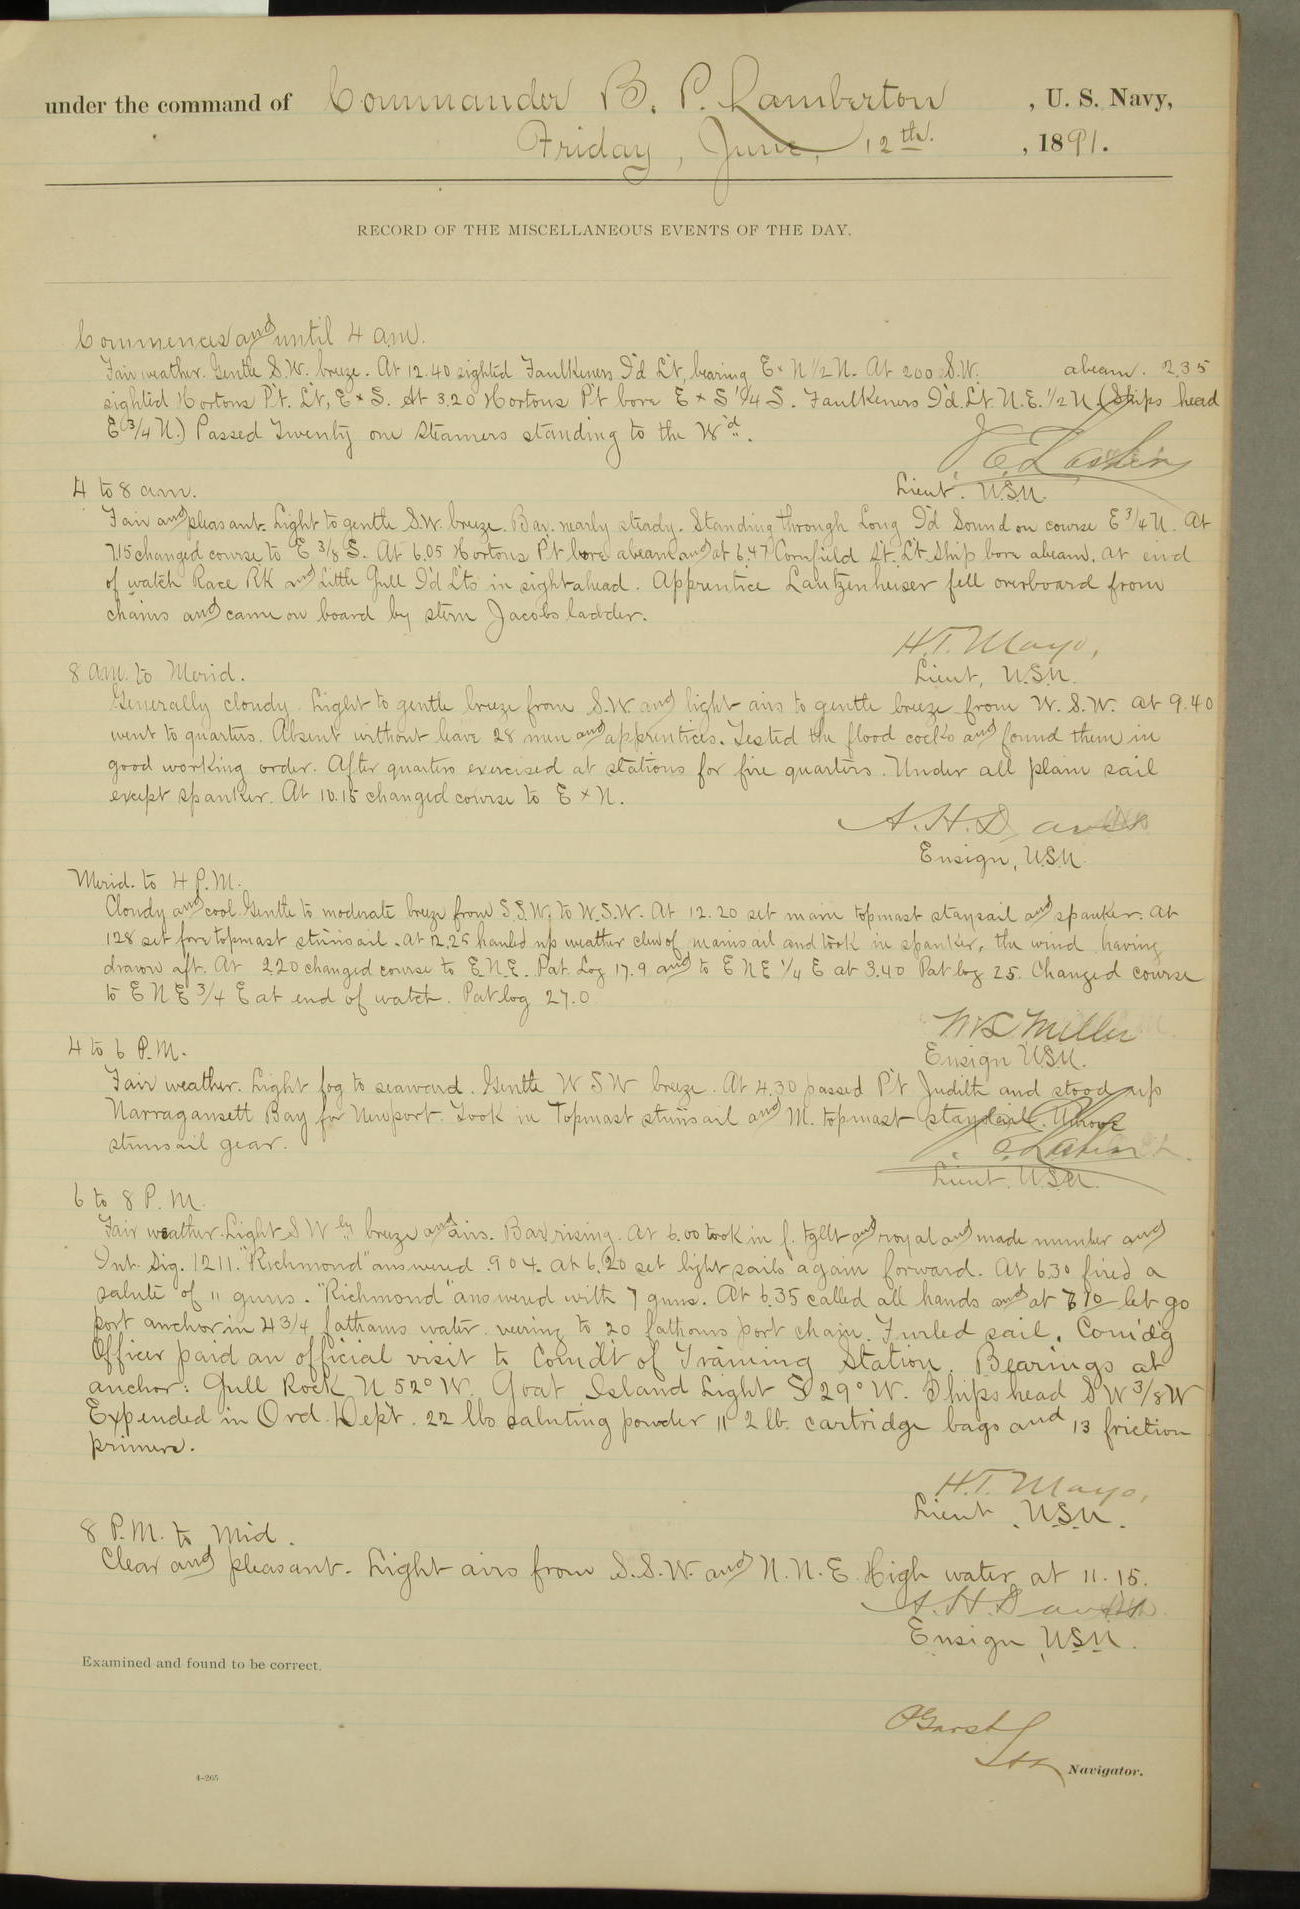 under the command of Commander B. P. Lamberton, U. S. Navy,
Friday, June, 12th., 1891.
RECORD OF THE MISCELLANEOUS EVENTS OF THE DAY.
Commences and until 4 am.
Fair weather. Gentle S.W. breeze. At 12.40 sighted Faulkeners I'd L't, bearing E x N 1/2 N. At 200 S.W. abeam. 2.35
sighted Hortons P't. Lt, E x S. At 3.20 Hortons P't bore E x S 1/4 S. Faulkeners I'd. L't N.E. 1/2 N (Ships head
E 3/4 N.) Passed Twenty one steamers standing to the W'd.
Lieut. U.S.N.
4 to 8 am.
Fair and pleasant. Light to gentle S.W. breeze. Bar. nearly steady. Standing through Long I'd Sound on course E 3/4 N. At
7.15 changed course to E 3/8 S. At 6.05 Hortons P't bore abeam and at 6.47 Cornfield L't. Ship bore abeam. at end
of watch Race RK and Little Gull I'd L'ts in sight ahead. Apprentice Lautzenheiser fell overboard from
chains and came on board by stern Jacobs ladder.
H.T. Mayo,
Lieut, U.S.N.
8 am. to Merid.
Generally cloudy. Light to gentle breeze from S.W. and light airs to gentle breeze from W. S. W. At 9.40
went to quarters. Absent without leave 28 men and apprentices. Tested the flood cocks and found them in
good working order. After quarters exercised at stations for fire quarters. Under all plain sail
except spanker. At 10.15 changed course to E x N.
A. H. Davis
Ensign, U.S.N.
Merid. to 4 P.M.
Cloudy and cool. Gentle to moderate breeze from S.S.W. to W.S.W. At 12.20 set main topmast staysail and spanker. At
128 set fore topmast stunsail. At 12.25 hauled up weather clew of mainsail and took in spanker, the wind having
drawn aft. At 2.20 changed course to E.N.E. Pat. Log 17.9 and to E N E 1/4 E at 3.40 Pat log 25. Changed course
to E N E 3/4 E at end of watch. Pat log 27.0
Miller
Ensign U.S.N.
4 to 6 P.M.
Fair weather. Light fog to seaward. Gentle W S W breeze. At 4.30 passed P't Judith and stood up
Narragansett Bay for Newport. Took in Topmast stunsail and M. topmast staysail. Unrove
stunsail gear.
Lieut. U.S.N.
6 to 8 P. M.
Fair weather. Light S W ly breeze and airs. Bar rising. At 6.00 took in f. tgllt and royal and made number and
Int. Sig. 1211. "Richmond" answered. 904. at 6.20 set light sails again forward. At 6.30 fired a
salute of 11 guns. "Richmond" answered with 7 guns. At 6.35 called all hands and at 7 10 let go
port anchor in 4 3/4 fathoms water veering to 20 fathoms port chain. Furled sail. Com'd'g
Officer paid an official visit to Comd't of Training Station. Bearings at
anchor: Gull Rock N 52° W. Goat Island Light S 29° W. Ships head S W 3/8 W
Expended in Ord. Dept. 22 lbs saluting powder 11 2 lb. cartridge bags and 13 friction
primers.
H.T. Mayo,
Lieut. U.S.N.
8 P.M. to Mid.
Clear and pleasant. Light airs from S.S.W. and N.N.E. High water at 11.15.
A. H. Davis
Ensign, U.S.N.
Examined and found to be correct.
Navigator.
4-265